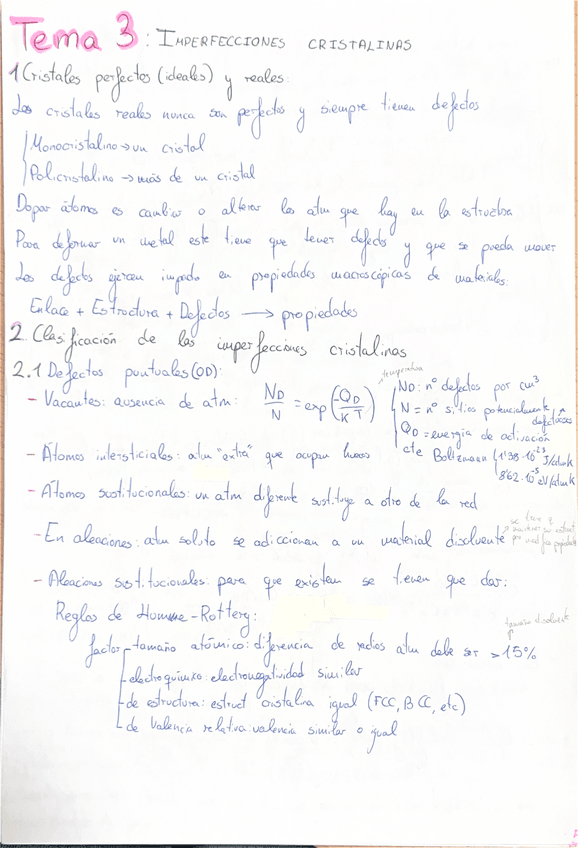 Tema 3: IMPERFECCIONES CRISTALINAS
1 Cristales perfectos (ideales) y reales:
Los cristales reales nunca son perfectos y siempre tienen defectos
Monocristalino → un cristal
Policristalino → más de un cristal
Dopar átomos es cambiar o alterar los atm que hay en la estructura
Para deformar un metal este tiene que tener defects y que se pueda mover
Los defectos ejercen impacto en propiedades macroscópicas de materiales:
Enlace + Estructura + Defectos → propiedades
2. Clasificación de las imperfecciones cristalinas
2.1 Defectos puntuales (0D):
- Vacantes: ausencia de atm: N_D/N = exp(-Q_D/KT)
temperatura
N_D: nº defectos por cm³
N = nº sitios potencialmente defectuosos
Q_D = energía de activación
cte Boltzmann (1'38·10⁻²³ J/atm k
8'62·10⁻⁵ eV/atm k
- Átomos intersticiales: atm "extra" que ocupan huecos
- Átomos sustitucionales: un atm diferente sustituye a otro de la red
- En aleaciones: atm soluto se adiccionan a un material disolvente
- Aleaciones sustitucionales: para que existan se tienen que dar:
Reglas de Humme-Rottery:
tamaño disolvente
factor - tamaño atómico: diferencia de radios atm debe ser > 15%
- electroquímico: electronegatividad similar
- de estructura: estruct cristalina igual (FCC, BCC, etc)
- de Valencia relativa: valencia similar o igual